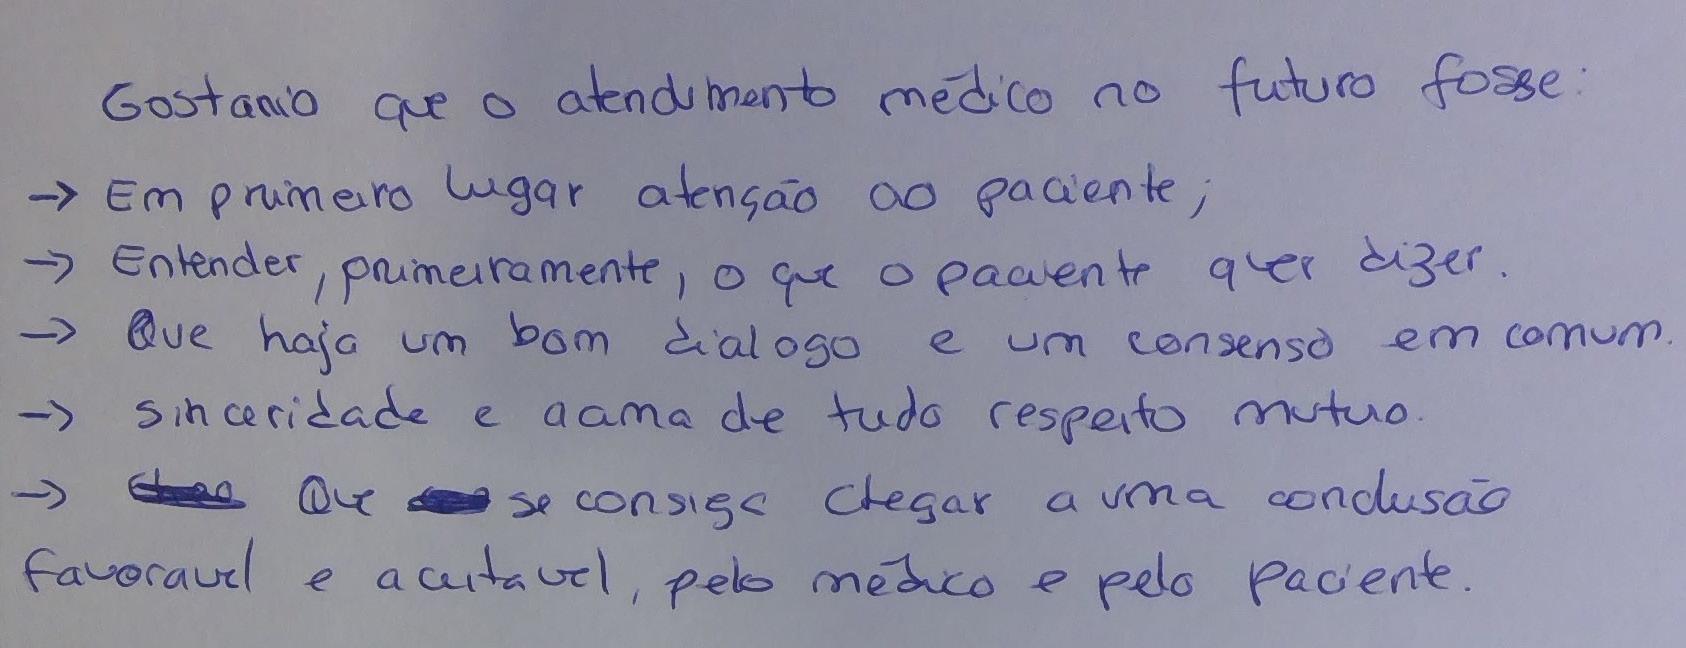 Gostaria que o atendimento médico no futuro fosse:
→ Em primeiro lugar atenção ao paciente;
→ Entender, primeiramente, o que o paciente quer dizer.
→ Que haja um bom dialogo e um consenso em comum.
→ sinceridade e acima de tudo respeito mutuo.
→ Que se consiga chegar a uma conclusão
favoravel e aceitavel, pelo médico e pelo paciente.